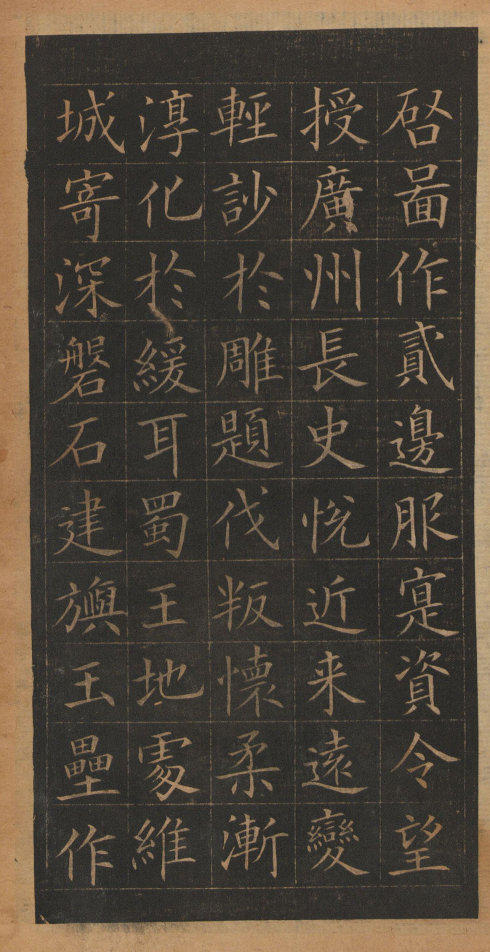 启啚作貳邊服寔資令望
授廣州長史悅近来遠變
輕訬於雕題伐叛懷柔漸
淳化於緩耳蜀王地處維
城寄深磐石建旟玉壘作